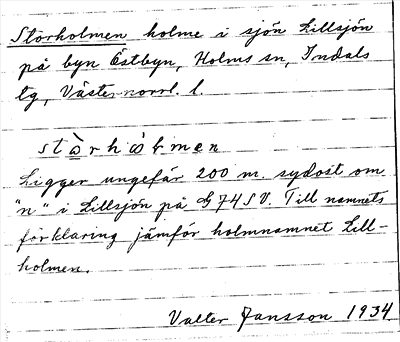 Storholmen holme i sjön Lillsjön
på byn Östbyn, Holms sn, Indals
tg, Västernorrl. l.
stò̤rhò̤lmen
Ligger ungefär 200 m. sydost om
"n" i Lillsjön på G74SV. Till namnets
förklaring jämför holmnamnet Lill-
holmen.
Valter Jansson 1934